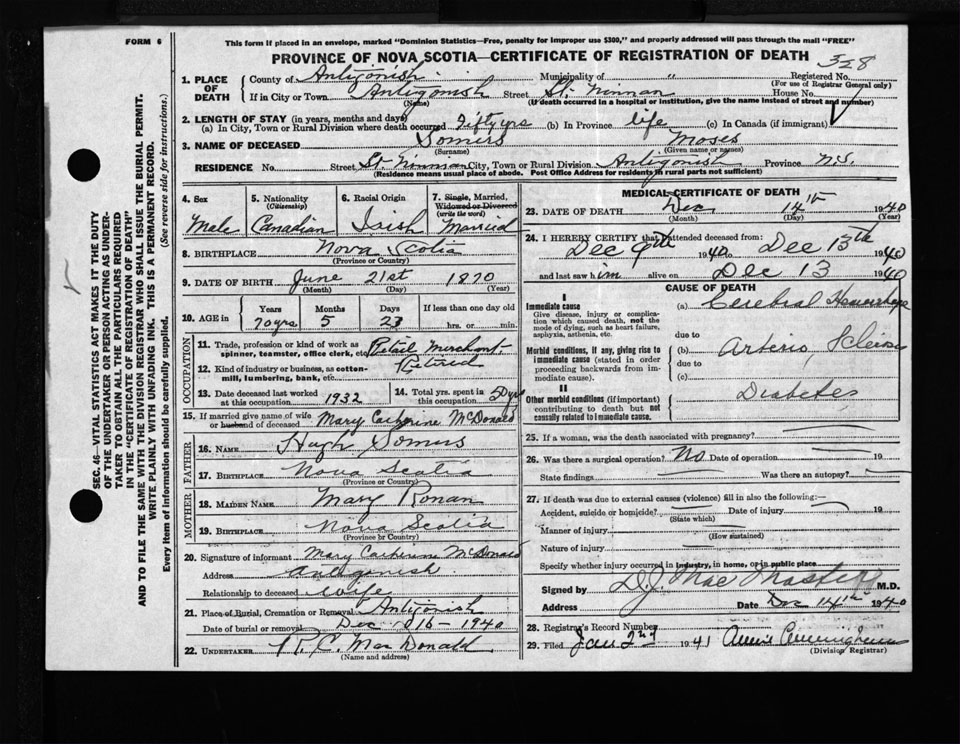 FORM 6
This form if placed in an envelope, marked "Dominion Statistics—Free, penalty for improper use $300," and properly addressed will pass through the mail "FREE"
PROVINCE OF NOVA SCOTIA—CERTIFICATE OF REGISTRATION OF DEATH
328
1. PLACE OF DEATH County of Antigonish Municipality of " Registered No.
(For use of Registrar General only)
If in City or Town Antigonish Street St. Ninnan House No.
(Name) (If death occurred in a hospital or institution, give the name instead of street and number)
2. LENGTH OF STAY (in years, months and days)
(a) In City, Town or Rural Division where death occurred fifty yrs (b) In Province life (c) In Canada (if immigrant)
3. NAME OF DECEASED Somers Moses
(Surname) (Given name or names)
RESIDENCE No. Street St. Ninnan City, Town or Rural Division Antigonish Province N.S.
(Residence means usual place of abode. Post Office Address for residents in rural parts not sufficient)
4. Sex Male
5. Nationality (Citizenship) Canadian
6. Racial Origin Irish
7. Single, Married, Widowed or Divorced (write the word) Married
8. BIRTHPLACE Nova Scotia
(Province or Country)
9. DATE OF BIRTH June 21st 1870
(Month) (Day) (Year)
10. AGE in Years Months Days If less than one day old
70 yrs 5 23 hrs. or min.
OCCUPATION
11. Trade, profession or kind of work as spinner, teamster, office clerk, etc. Retail Merchant
12. Kind of industry or business, as cotton-mill, lumbering, bank, etc. Retired
13. Date deceased last worked at this occupation 1932
14. Total yrs. spent in this occupation 50 yrs
15. If married give name of wife or husband of deceased Mary Catherine McDonald
FATHER
16. NAME Hugh Somers
17. BIRTHPLACE Nova Scotia
(Province or Country)
MOTHER
18. MAIDEN NAME Mary Ronan
19. BIRTHPLACE Nova Scotia
(Province or Country)
20. Signature of informant Mary Catherine McDonald
Address Antigonish
Relationship to deceased Wife
21. Place of Burial, Cremation or Removal Antigonish
Date of burial or removal Dec 16 - 1940
22. UNDERTAKER R. C. MacDonald
(Name and address)
MEDICAL CERTIFICATE OF DEATH
23. DATE OF DEATH Dec 14th 1940
(Month) (Day) (Year)
24. I HEREBY CERTIFY that I attended deceased from:
Dec 9th 1940 to Dec 13th 1940
and last saw him alive on Dec 13 1940
CAUSE OF DEATH
I
Immediate cause (a) Cerebral Hemorrhage
Give disease, injury or complication which caused death, not the mode of dying, such as heart failure, asphyxia, asthenia, etc.
due to
Morbid conditions, if any, giving rise to immediate cause (stated in order proceeding backwards from immediate cause). (b) Arterio Sclerosis
due to
(c)
II
Other morbid conditions (if important) contributing to death but not causally related to immediate cause. Diabetes
25. If a woman, was the death associated with pregnancy?
26. Was there a surgical operation? No Date of operation 19
State findings Was there an autopsy?
27. If death was due to external causes (violence) fill in also the following:—
Accident, suicide or homicide? Date of injury 19
(State which)
Manner of injury
(How sustained)
Nature of injury
Specify whether injury occurred in industry, in home, or in public place
Signed by D. J. MacMaster M.D.
Address Date Dec 14th 1940
28. Registrar's Record Number
29. Filed Jan 2nd 1941 Annie Cunningham
(Division Registrar)
SEC. 46—VITAL STATISTICS ACT MAKES IT THE DUTY
OF THE UNDERTAKER OR PERSON ACTING AS UNDER-
TAKER TO OBTAIN ALL THE PARTICULARS REQUIRED
IN THE "CERTIFICATE OF REGISTRATION OF DEATH"
AND TO FILE THE SAME WITH THE DIVISION REGISTRAR WHO SHALL ISSUE THE BURIAL PERMIT.
WRITE PLAINLY WITH UNFADING INK. THIS IS A PERMANENT RECORD.
Every item of information should be carefully supplied. (See reverse side for instructions.)